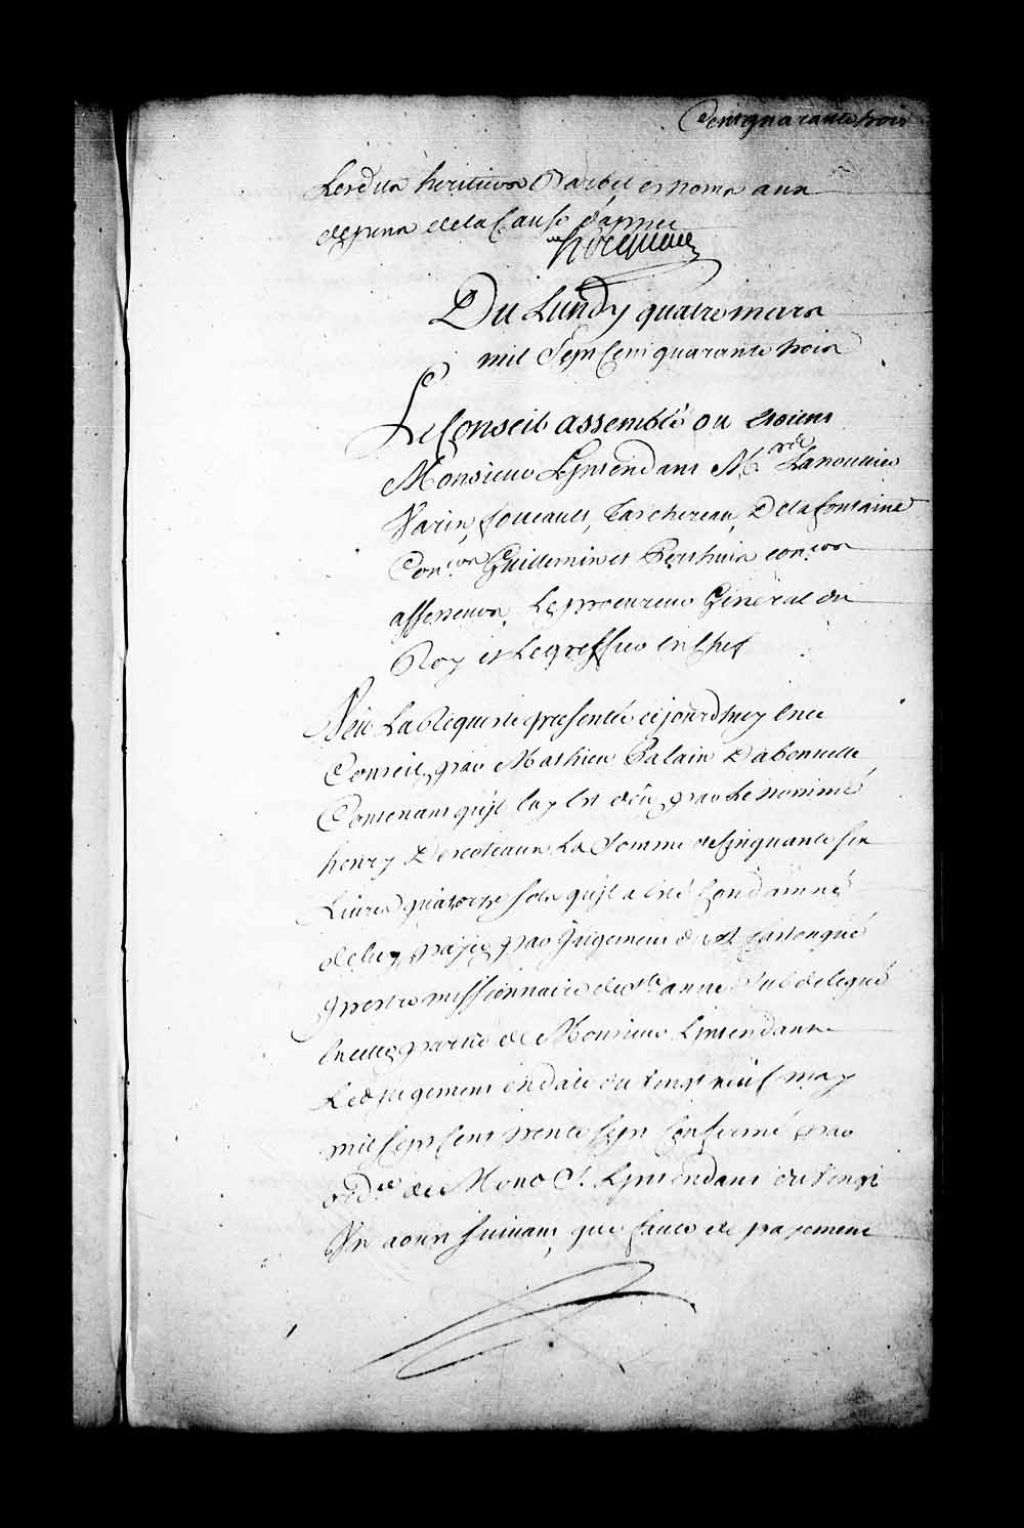 Cent quarante trois
Lesdits heritiers Barbel es noms aux
depens de la Cause d'appel
hocquart
Du Lundy quatre mars
mil Sept Cent quarante trois
Le Conseil assemblé ou etoient
Monsieur L'jntendant Mrs. De Lanoullier
Varin, foucault, Taschereau, De la fontaine
Con.ers Guillemin et Perthuis con.ers
assesseurs, Le procureur Général du
Roy et Le greffier En Chef
Veu La Requeste presentée cejourd'huy En ce
Conseil, par Mathieu Palain Dabonville
Contenant qu'jl luy Est dû, par Le nommé
henry Descoteaux La Somme de Cinquante six
Livres quatorze sols qu'jl a Eté Condamné
de luy payer par Jugement de
prestre missionnaire de Ste. anne Subdelegué
En cette partie de Monsieur L'jntendant
Led. jugement En date du vingt neuf may
mil sept cent trente sept Confirmé par
ord.ce de Mond. S. L'jntendant du vingt
Un aoust suivant, que faute de payement